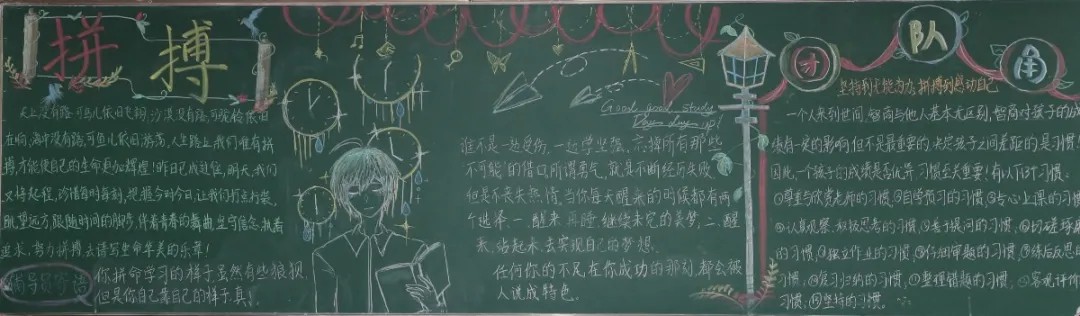 拼搏
天上没有路,可鸟儿依旧飞翔,沙漠没有路,可驼铃依旧
在响,海中没有路,可鱼儿依旧游荡,人生路上,我们唯有拼
搏,才能使自己的生命更加辉煌!昨日已成过往,明天,我们
又将起程,珍惜每时每刻,把握今时今日,让我们打点行装,
眺望远方,跟随时间的脚步,伴着青春的舞曲,坚守信念,执着
追求,努力拼搏,去谱写生命华美的乐章!
辅导员寄语
你拼命学习的样子虽然有些狼狈,
但是你自己靠自己的样子真
Good good study
Day day up!
谁不是一边受伤,一边学坚强,忘掉所有那些
不可能"的借口,所谓勇气,就是不断经历失败,
但是不丧失热情,当你每天醒来的时候都有两
个选择,一、醒来,再睡,继续未完的美梦,二、醒
来,站起来,去实现自己的梦想.
任何你的不足,在你成功的那刻,都会被
人说成特色。
团队角
坚持到无能为力,拼搏到感动自己
一个人来到世间,智商与他人基本无区别,智商对孩子的成
绩有一定的影响,但不是最重要的,决定孩子之间差距的是习惯!
因此,一个孩子的成绩是否优异,习惯至关重要!有以下好习惯。
①尊重与欣赏老师的习惯,②自学预习的习惯,③专心上课的习惯
④认真观察,积极思考的习惯,⑤善于提问的习惯,⑥切磋琢磨
的习惯,⑦独立作业的习惯,⑧仔细审题的习惯,⑨练后反思
的习惯,⑩复习归纳的习惯,⑪整理错题的习惯,⑫客观评价
习惯,⑬坚持的习惯。